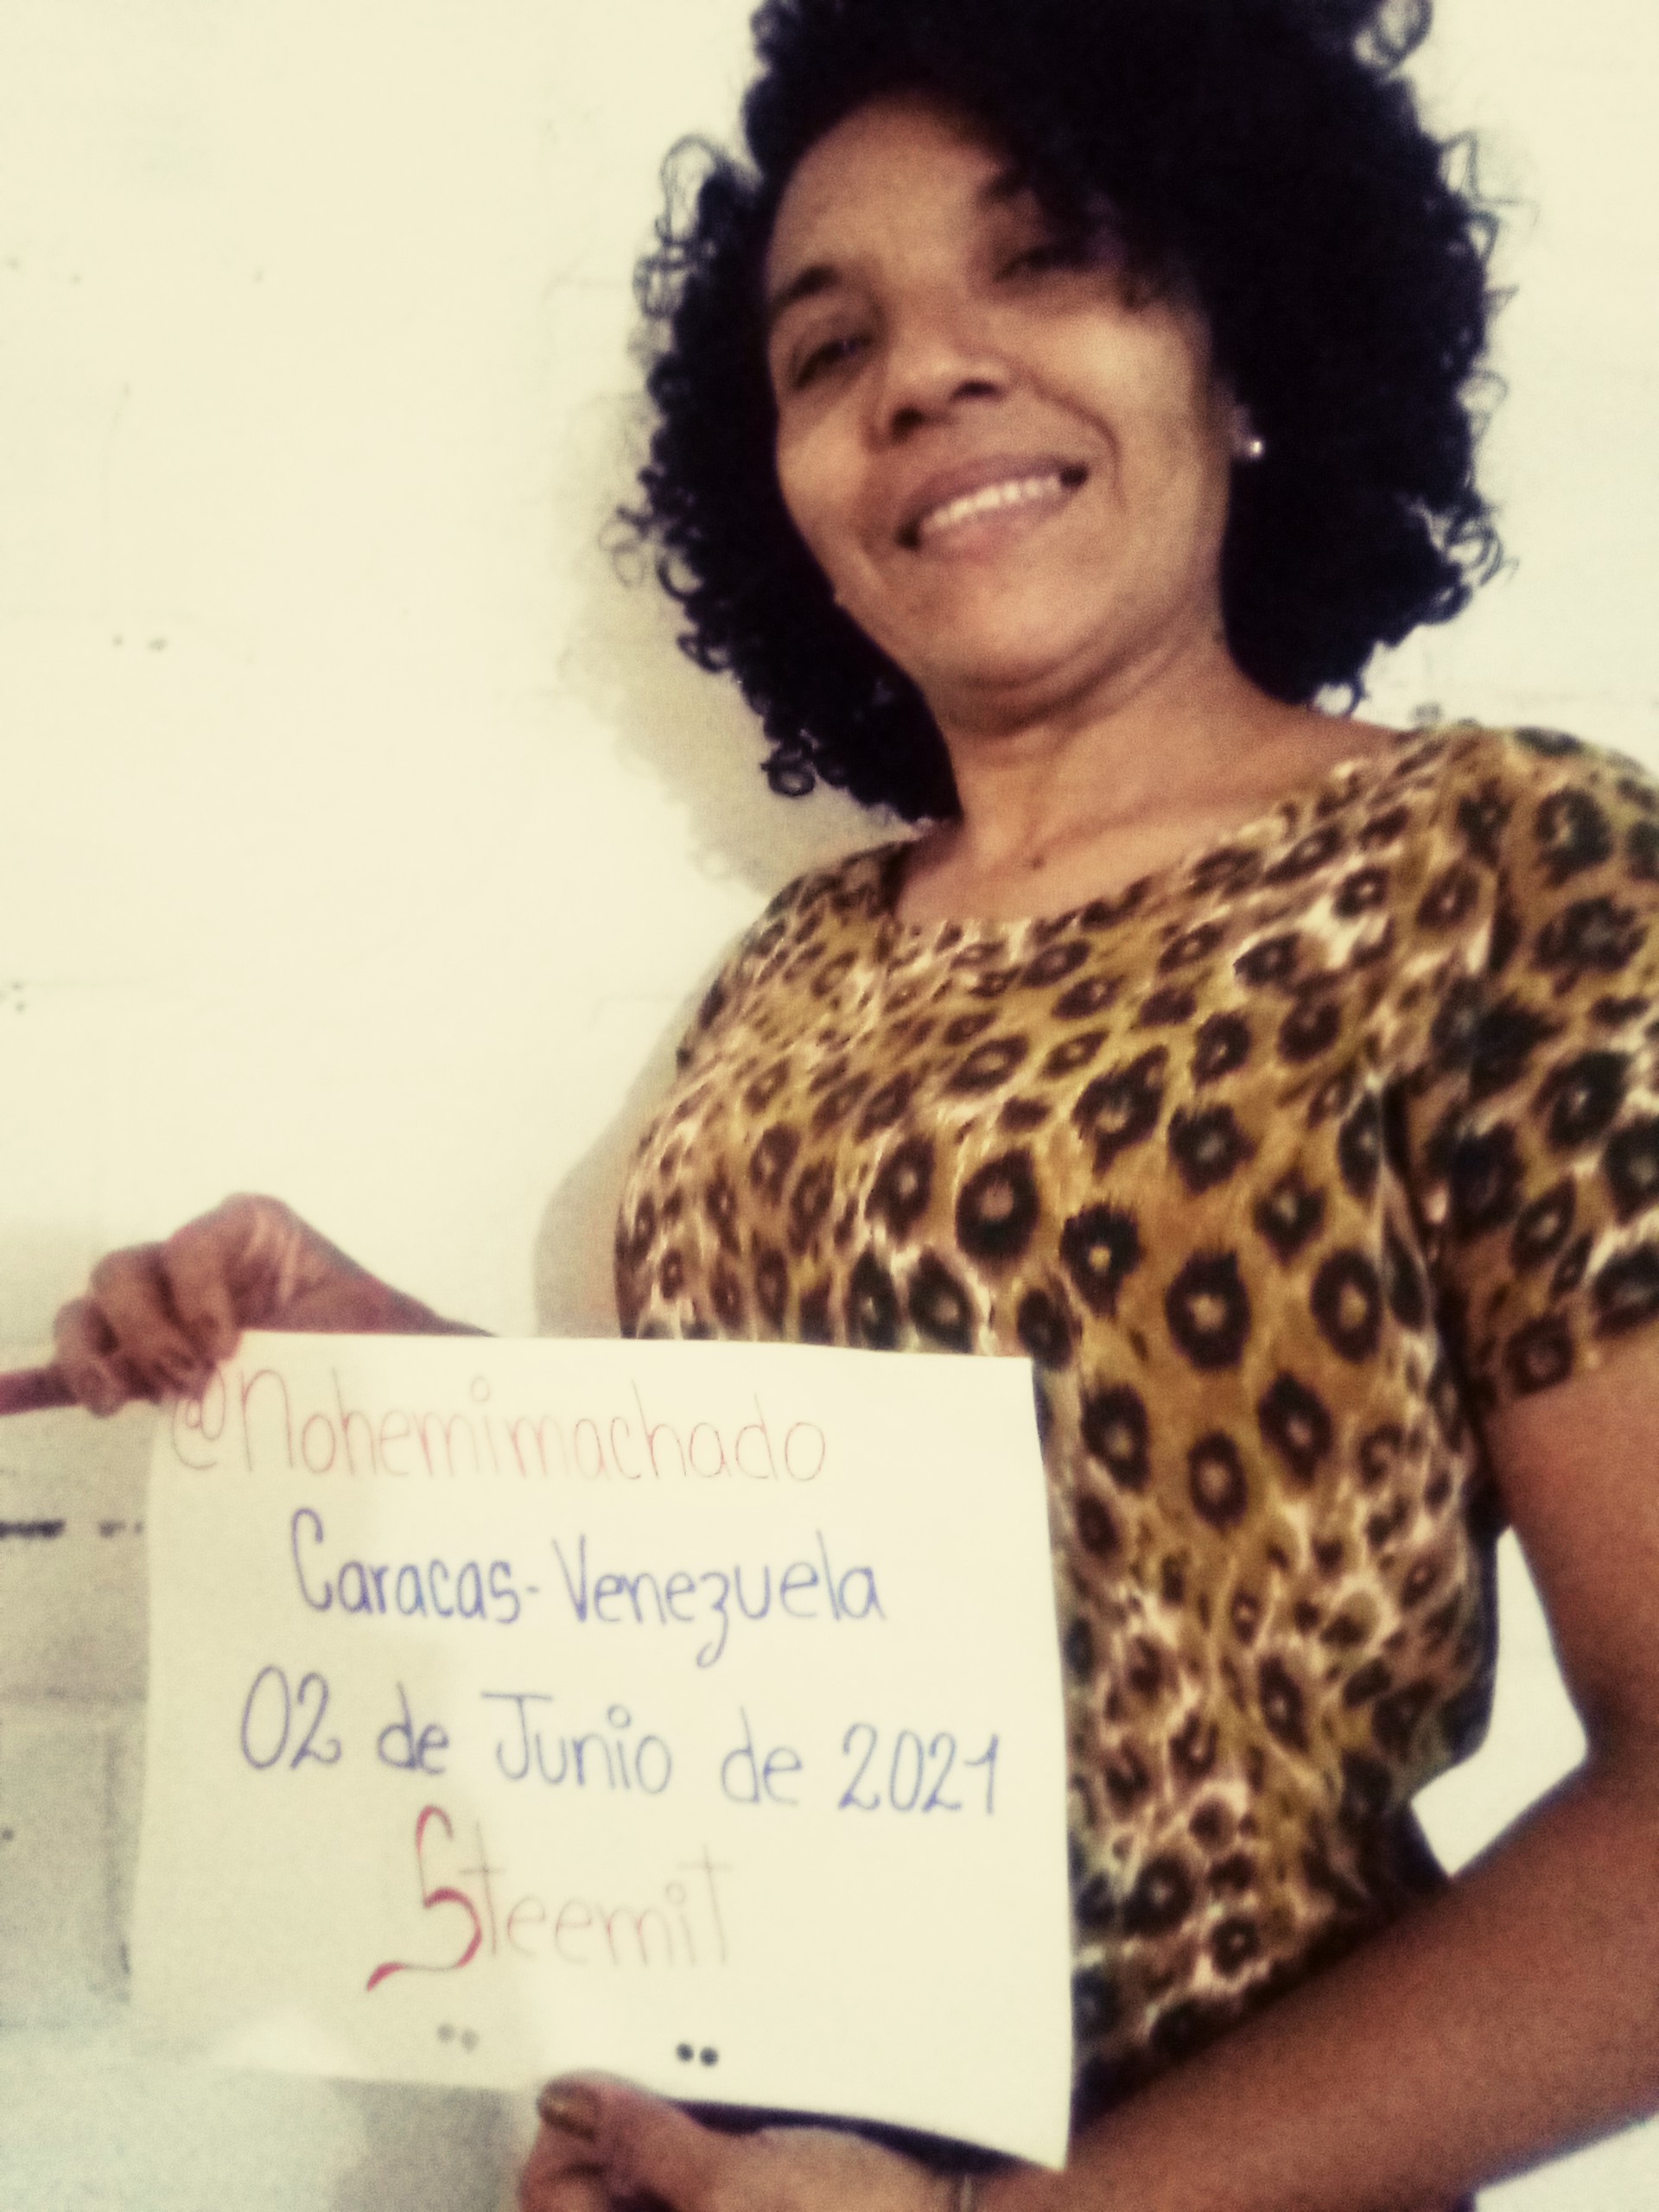 @Nohemimachado
Caracas-Venezuela
02 de Junio de 2021
Steemit